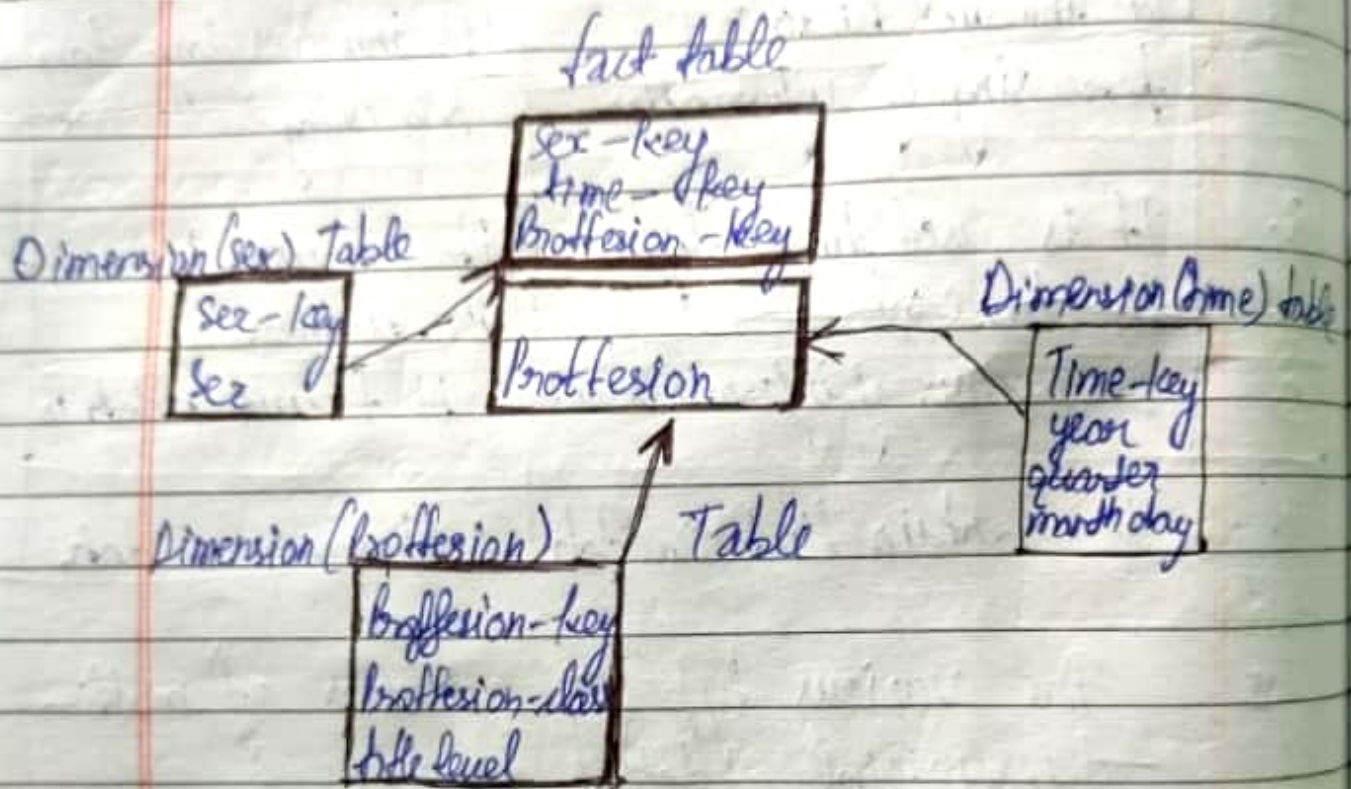 fact table
sex-key
time-key
Proffesion-key
Dimension(sex) Table
sex-key
sex
Proffesion
Dimension(time) table
Time-key
year
quarter
month day
Dimension(Proffesion) Table
Proffesion-key
Proffesion-class
title level